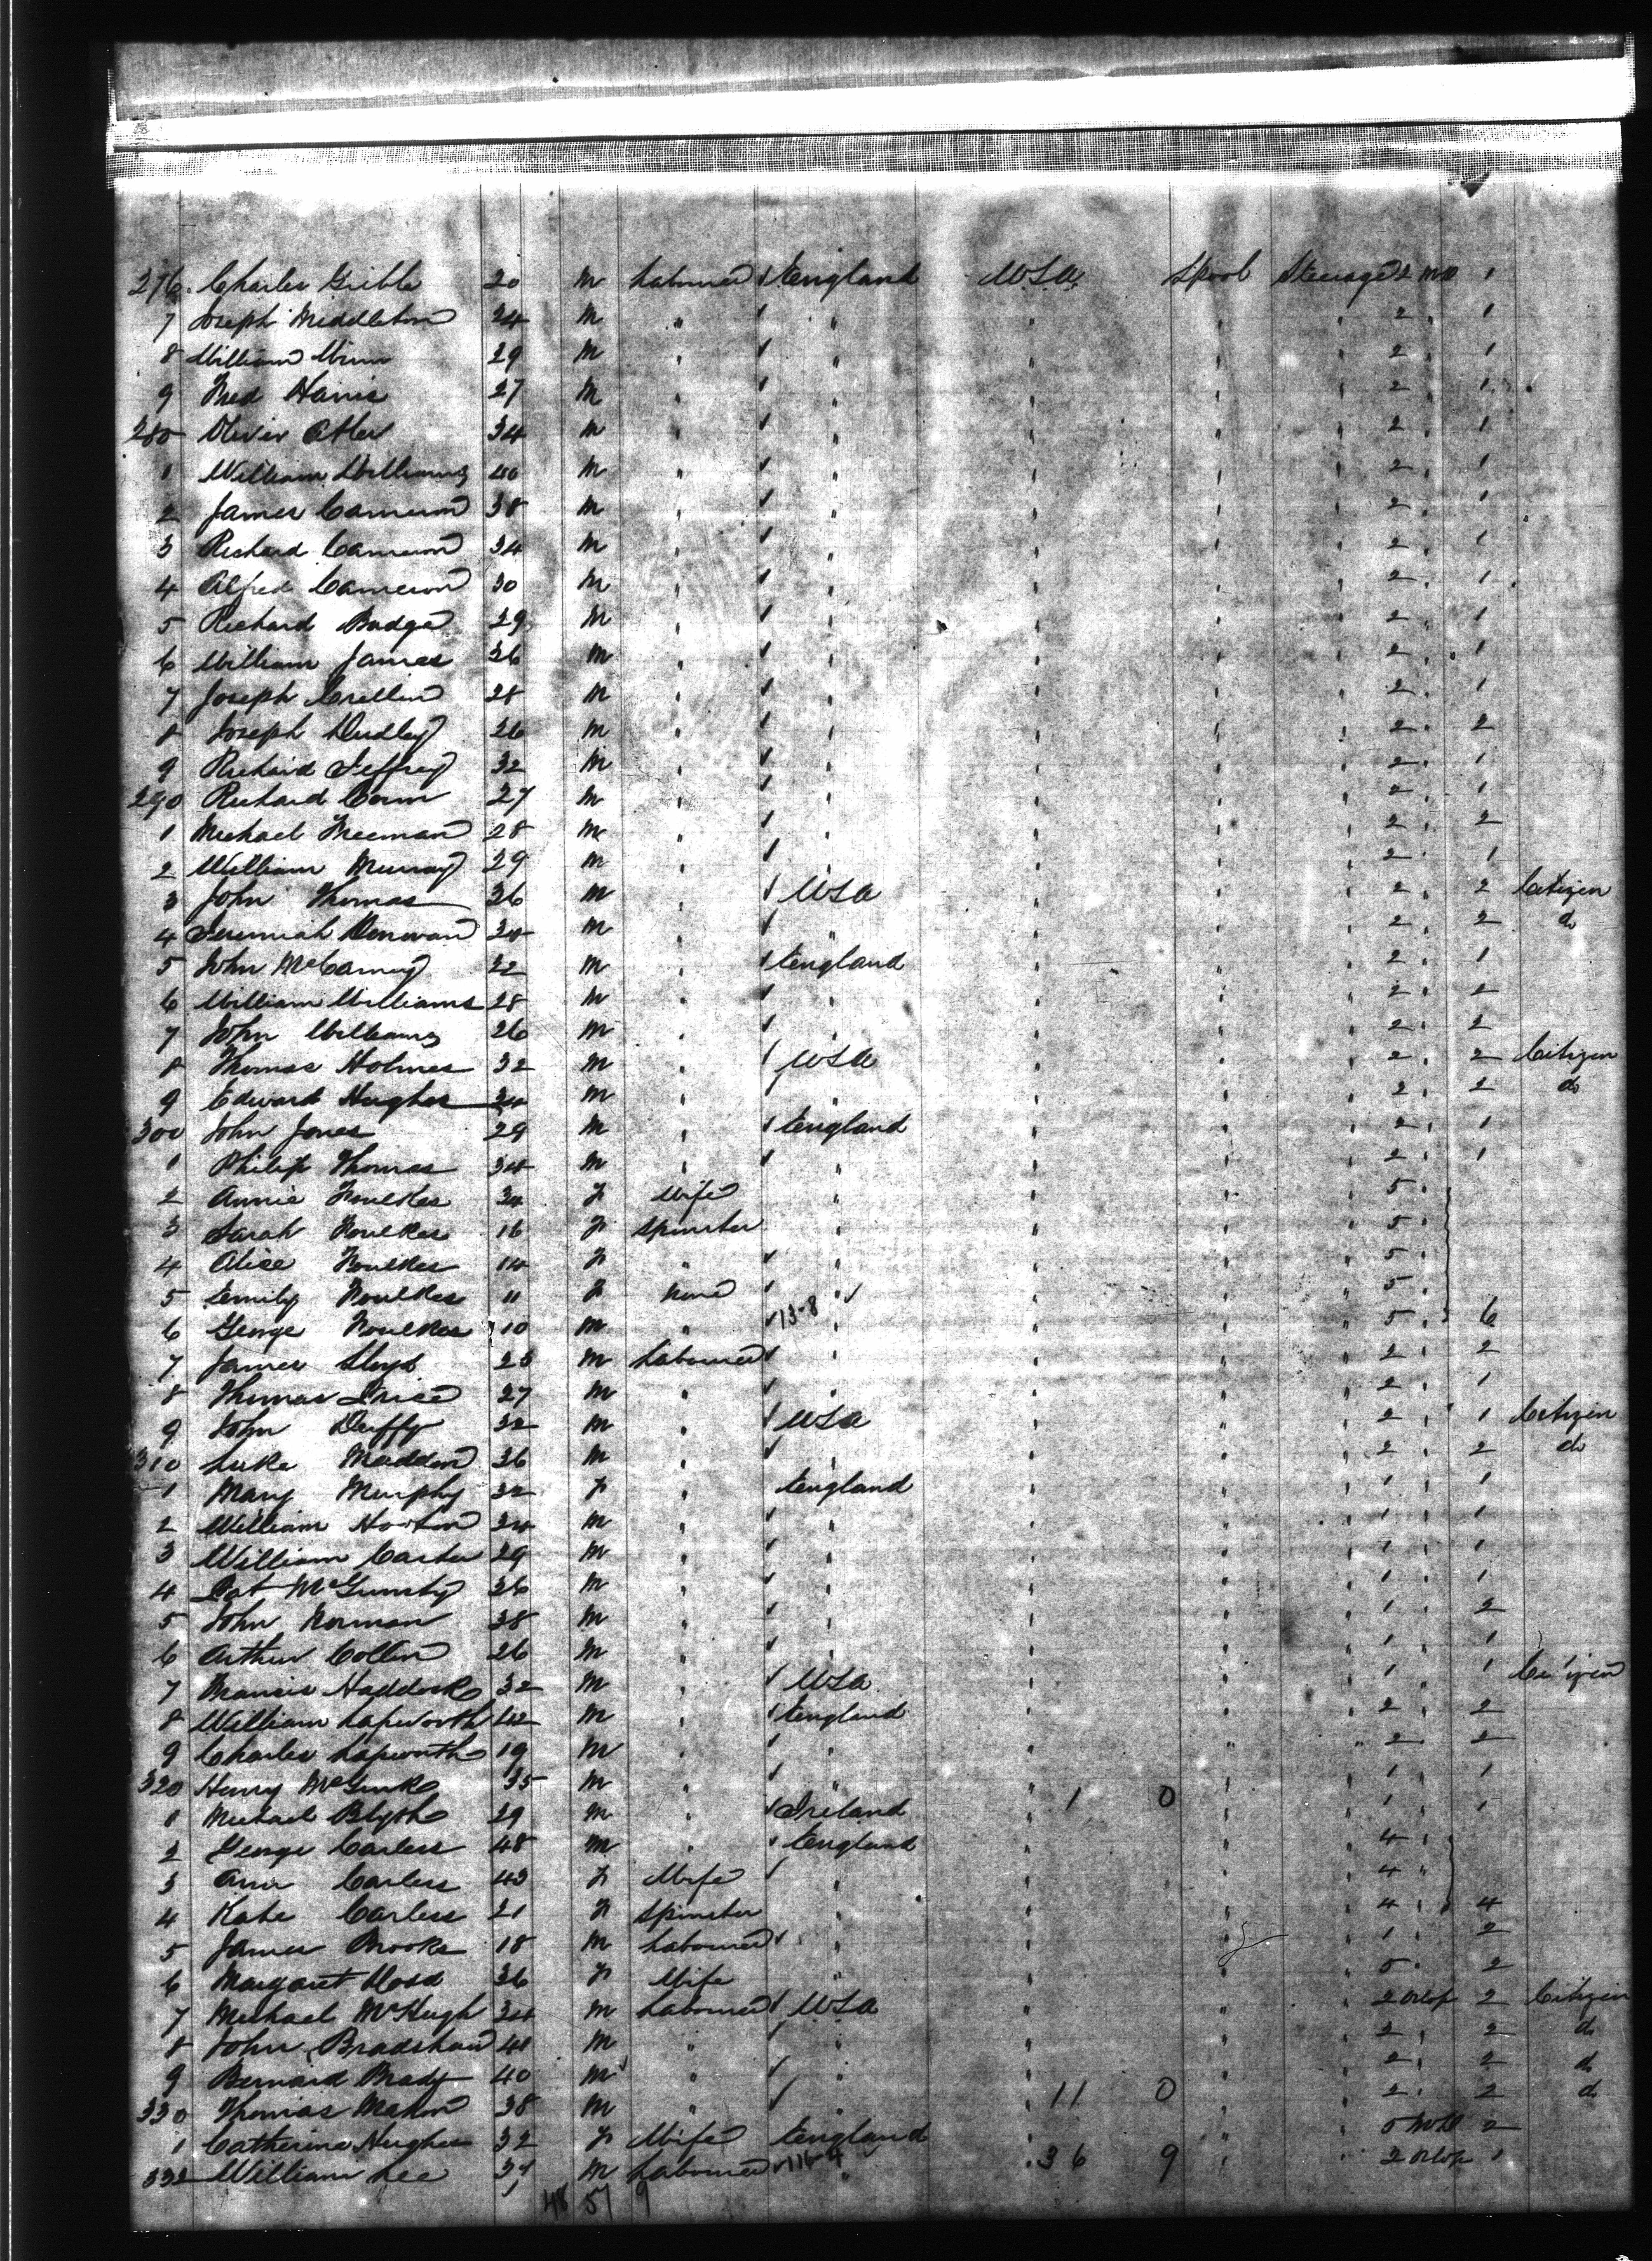 276 Charles Gribble 20 M Labourer England USA Lpool Steerage 2 1
7 Joseph Middleton 24 M " " " " " 2 " 1
8 William 29 M " " " " " 2 " 1
9 Fred Harris 27 M " " " " " 2 " 1
280 Oliver 34 M " " " " " 2 " 1
1 William Williams 40 M " " " " " 2 " 1
2 James Cameron 38 M " " " " " 2 " 1
3 Richard Cameron 34 M " " " " " 2 " 1
4 Alfred Cameron 30 M " " " " " 2 " 1
5 Richard Badge 29 M " " " " " 2 " 1
6 William James 36 M " " " " " 2 " 1
7 Joseph Crellin 28 M " " " " " 2 " 1
8 Joseph Dudley 26 M " " " " " 2 " 2
9 Richard Jeffrey 32 M " " " " " 2 " 1
290 Richard 27 M " " " " " 2 " 1
1 Michael Freeman 28 M " " " " " 2 " 2
2 William Murray 29 M " " " " " 2 " 1
3 John Thomas 36 M " USA " " " 2 " 2 Citizen
4 Jeremiah Donovan M " " " " " 2 " 2 do
5 John McCarney 22 M " England " " " 2 " 1
6 William Williams 28 M " " " " " 2 " 2
7 John Williams 26 M " " " " " 2 " 2
8 Thomas Holmes 32 M " USA " " " 2 " 2 Citizen
9 Edward Hughes 34 M " " " " " 2 " 2 do
300 John Jones 29 M " England " " " 2 " 1
1 Philip Thomas 34 M " " " " " 2 " 1
2 Annie Foulkes 34 F Wife " " " " 5
3 Sarah Foulkes 16 F Spinster " " " " 5
4 Alice Foulkes 14 F " " " " " 5
5 Emily Foulkes 11 F None " " " " 5
6 George Foulkes 10 M " 13-8 " " " " 5 6
7 James Lloyd M Labourer " " " " 2 " 2
8 Thomas Price 27 M " " " " " 2 " 1
9 John Duffy 32 M " USA " " " 2 " 1 Citizen
310 Luke Madden 36 M " " " " " 2 " 2 do
1 Mary Murphy 32 F " England " " " 1 " 1
2 William Horton 24 M " " " " " 1 " 1
3 William Carter 29 M " " " " " 1 " 1
4 Pat 36 M " " " " " 1 " 1
5 John Norman 38 M " " " " " 1 " 2
6 Arthur Collin 26 M " " " " " 1 " 1
7 Francis Haddock 32 M " USA " " " 1 " 1 Citizen
8 William Lapworth 42 M " England " " " 2 " 2
9 Charles Lapworth 19 M " " " " " 2 " 2
320 Henry McGurk 35 M " " " " " 1 " 1
1 Michael Blyth 29 M " Ireland " 1 0 " " 1 " 1
2 George Carless 48 M " England " " " 4 "
3 Ann Carless 43 F Wife " " " " 4 "
4 Kate Carless 21 F Spinster " " " " 4 " 4
5 James Brooks 18 M Labourer " " " " 1 " 2
6 Margaret 36 F Wife " " " " 5 " 2
7 Michael McHugh 34 M Labourer USA " " " 2 Orlop 2 Citizen
8 John Bradshaw M " " " " " 2 " 2 do
9 Bernard Brady 40 M " " " " " 2 " 2 do
330 Thomas 38 M " " " 11 0 " " 2 " 2 do
1 Catherine Hughes 32 F Wife England " " " 5 2
332 William Lee M Labourer 116-4 " " 36 9 " " 2 Orlop 1
48 51 9